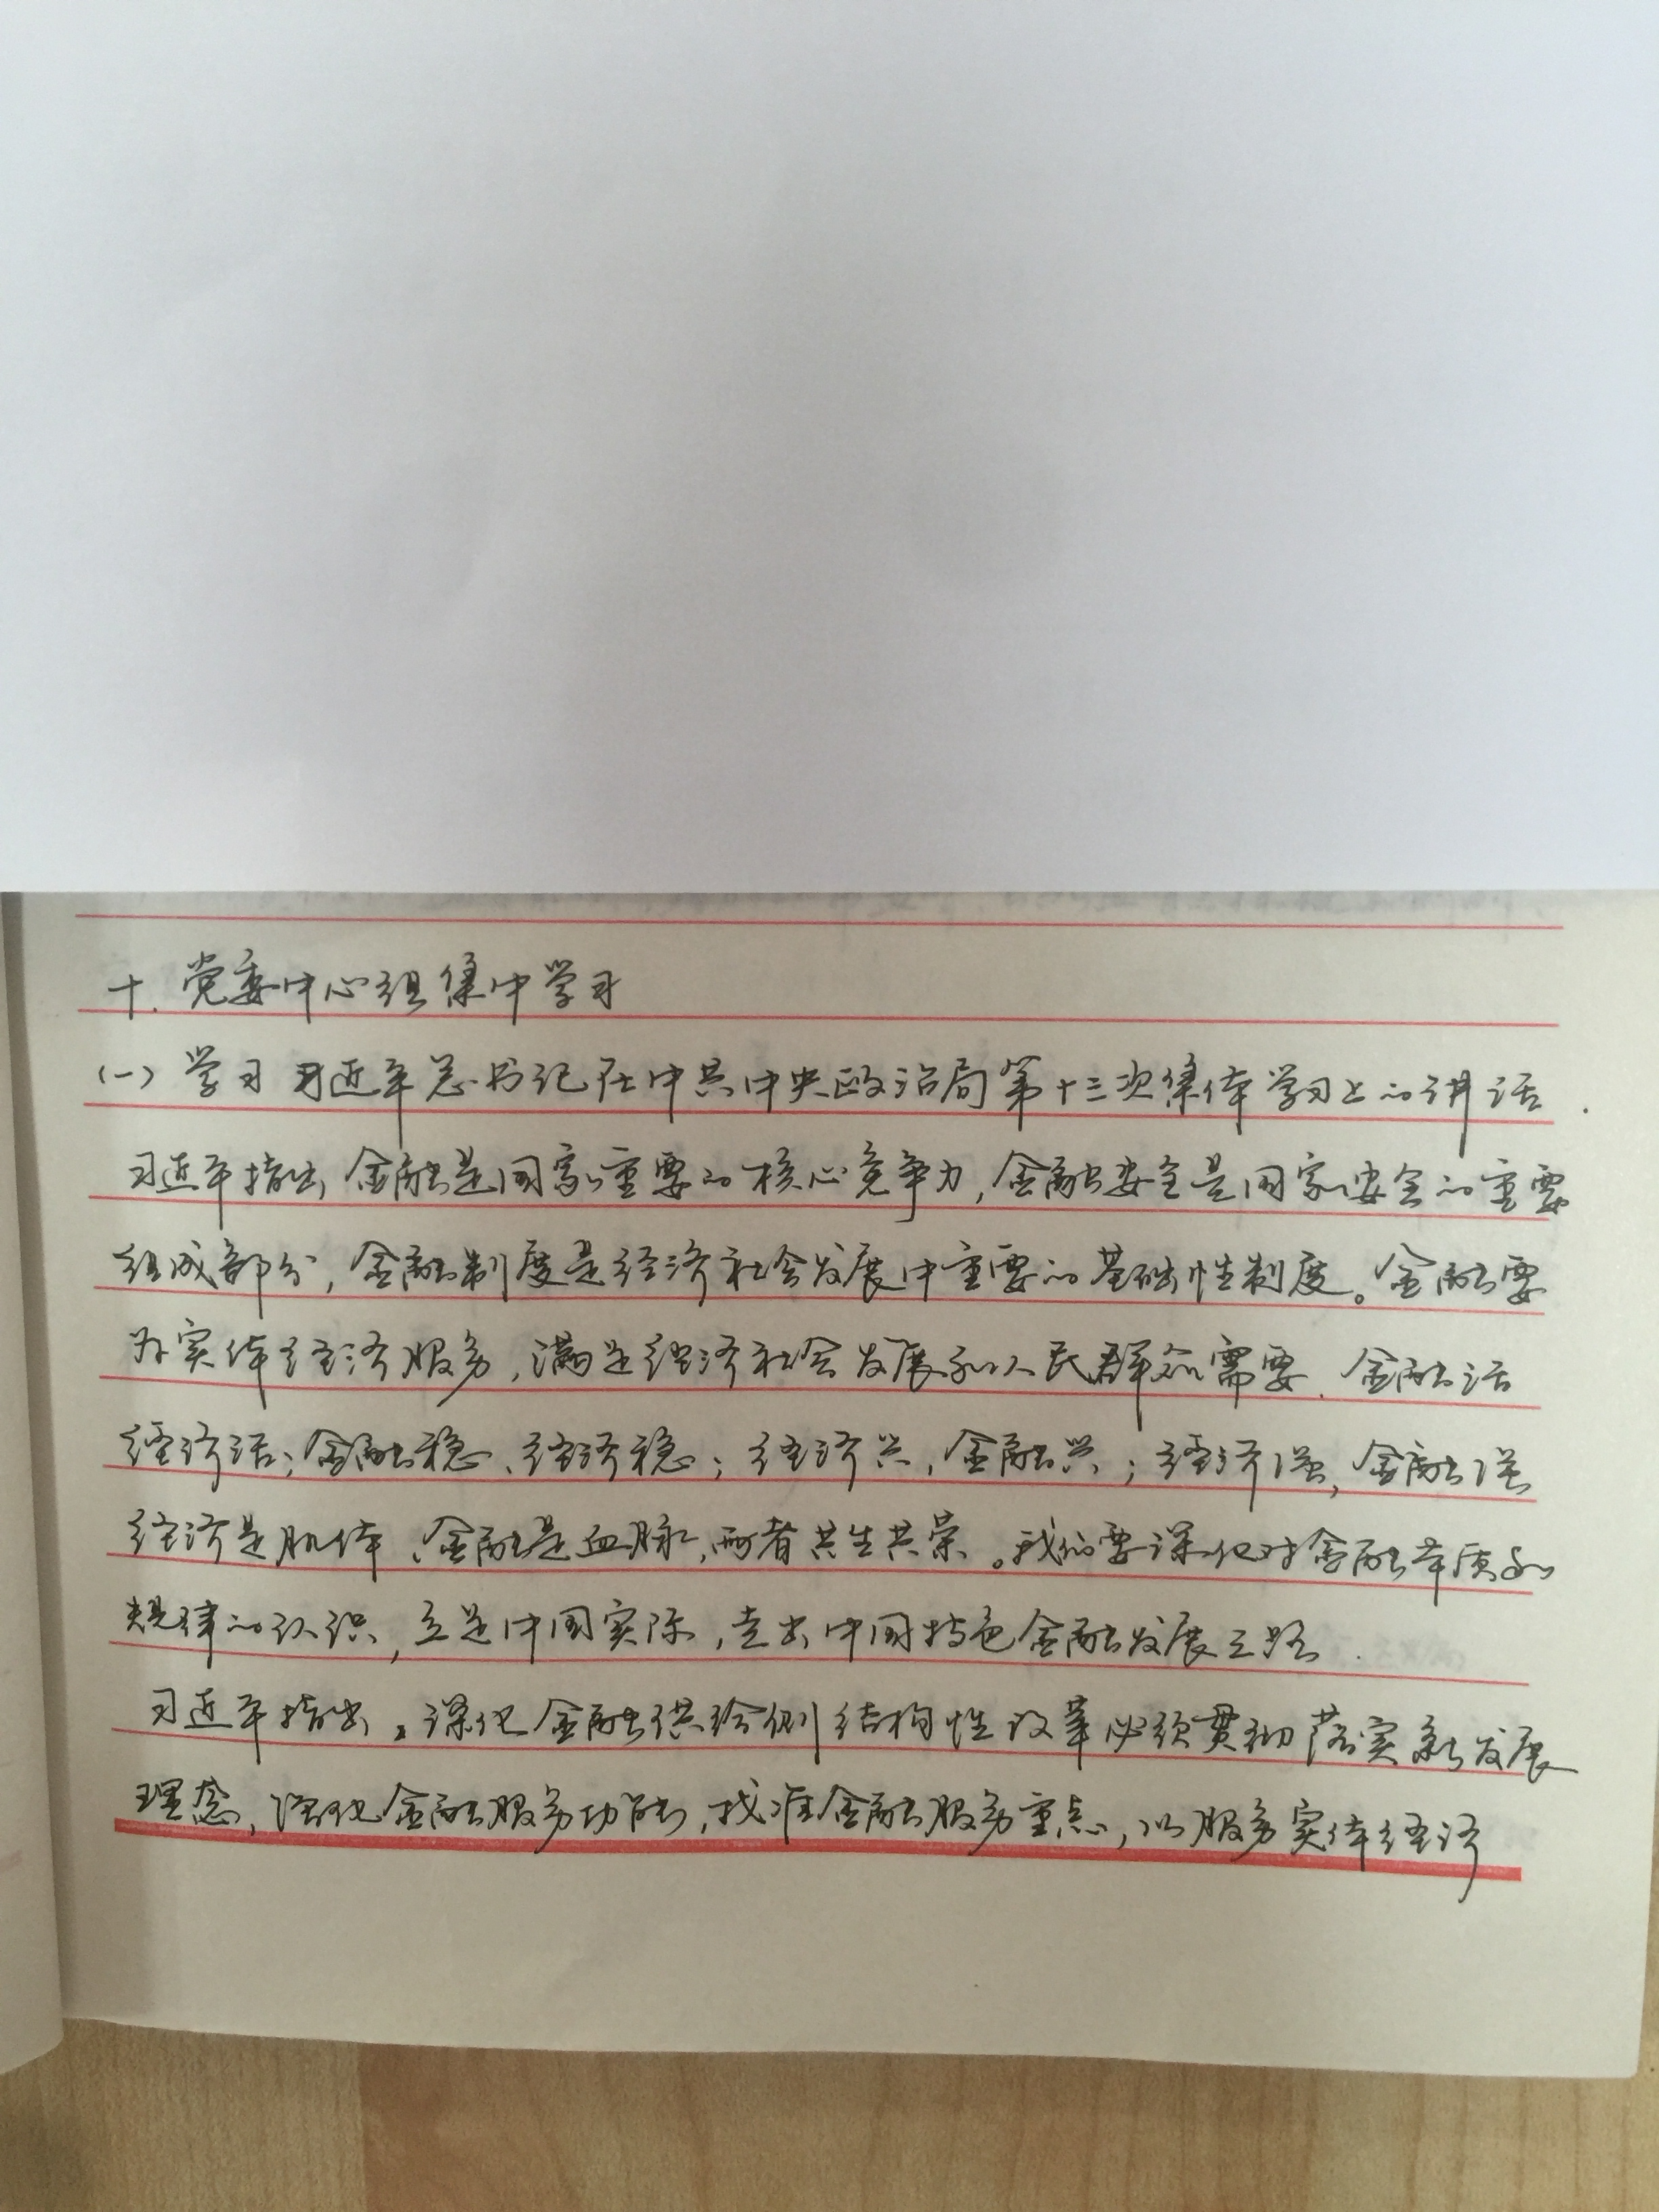 十.党委中心组集中学习
(一)学习习近平总书记在中共中央政治局第十三次集体学习上的讲话.
习近平指出,金融是国家重要的核心竞争力,金融安全是国家安全的重要
组成部分,金融制度是经济社会发展中重要的基础性制度。金融要
为实体经济服务,满足经济社会发展和人民群众需要.金融活
经济活;金融稳、经济稳;经济兴,金融兴;经济强,金融强
经济是肌体、金融是血脉,两者共生共荣。我们要深化对金融本质和
规律的认识,立足中国实际,走出中国特色金融发展之路.
习近平指出。深化金融供给侧结构性改革必须贯彻落实新发展
理念,强化金融服务功能,找准金融服务重点,以服务实体经济